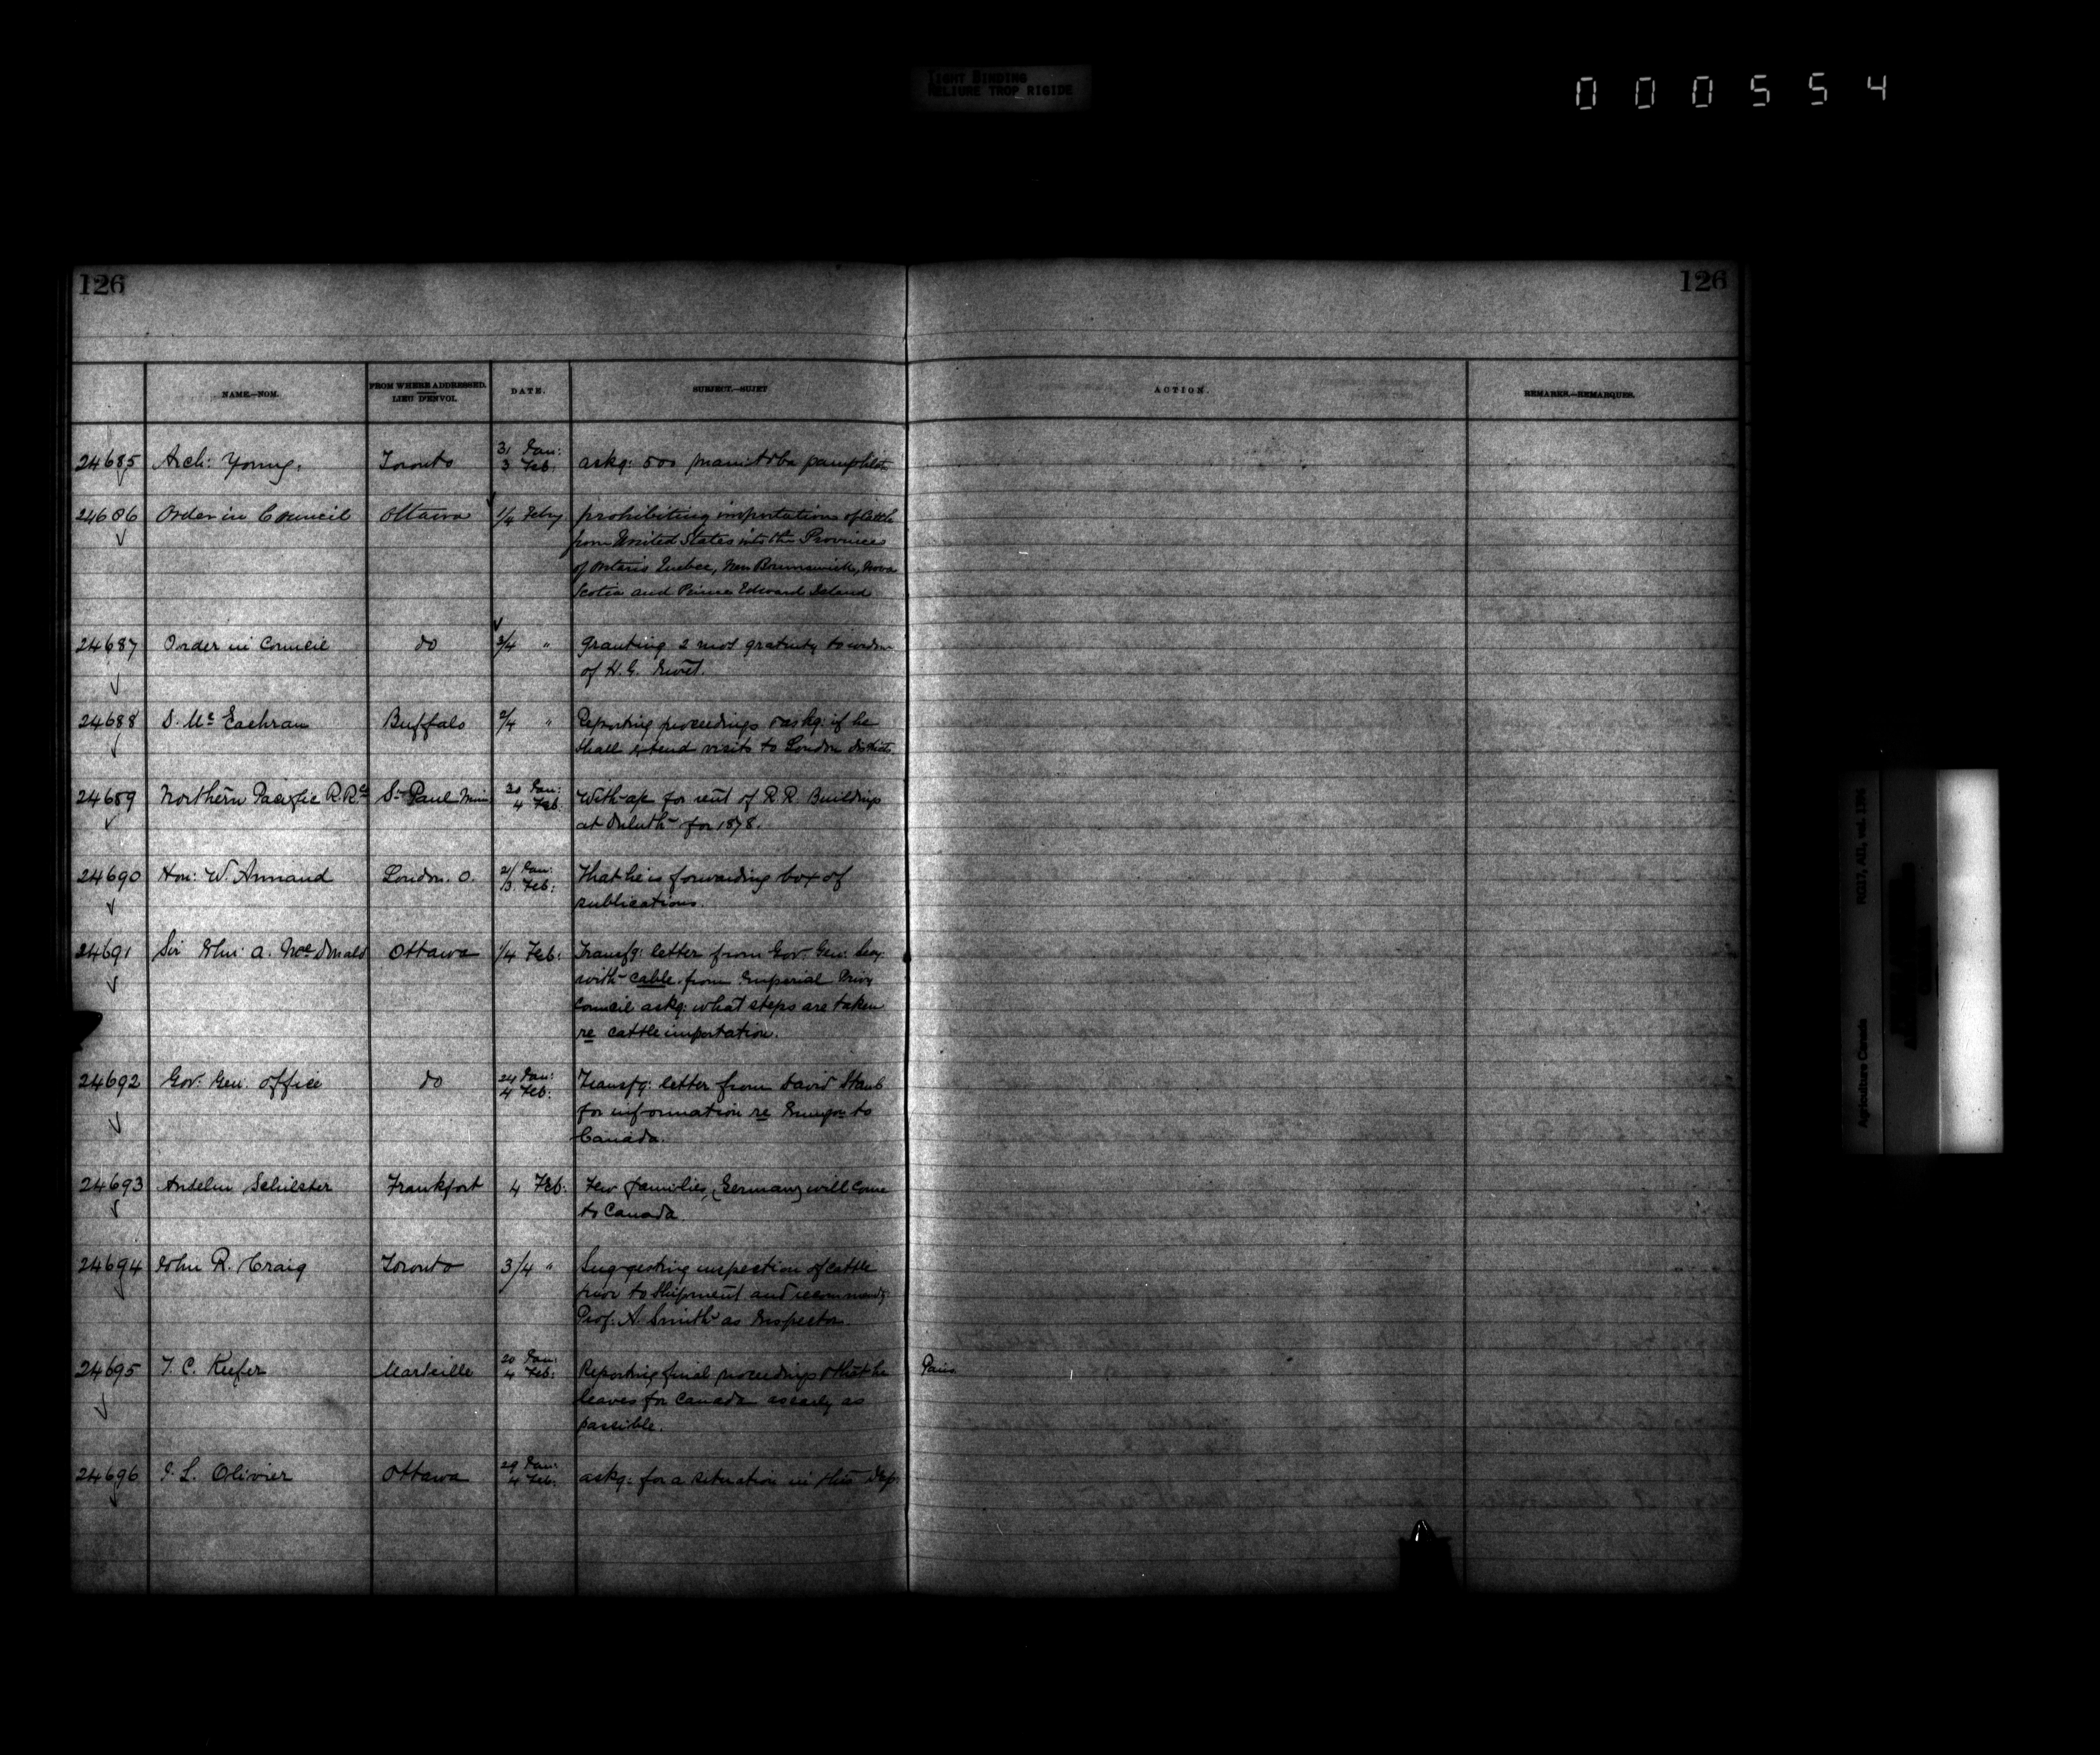 TIGHT BINDING
RELIURE TROP RIGIDE
000554
126
126
NAME.—NOM. FROM WHERE ADDRESSED. LIEU D'ENVOI. DATE. SUBJECT.—SUJET ACTION. REMARKS.—REMARQUES.
24685 Arch: Young. Toronto 31 Jan: 3 Feb: askg: 500 Manitoba pamphlets
24686 Order in Council Ottawa 1/4 Feby prohibiting importations of cattle
from United States into the Provinces
of Ontario Quebec, New Brunswick, Nova
Scotia and Prince Edward Island
24687 Order in Council do 3/4 " Granting 2 mos gratuity to widow
of H. G.
24688 D. McEachran Buffalo 2/4 " Reporting proceedings & askg: if he
shall extend visits to London district
24689 Northern Pacific R.R. Co St Paul Minn 30 Jan: 4 Feb: With a/c for rent of R R Buildings
at Duluth for 1878.
24690 Hon: W. Annand London. O. 21 Jan: 3 Feb: That he is forwarding box of
publications.
24691 Sir John A. MacDonald Ottawa 1/4 Feb: Transfg: letter from Gov Gen: Secy
with cable from Imperial Privy
Council askg: what steps are taken
re cattle importation.
24692 Gov: Gen. Office do 24 Jan: 4 Feb: Transfg: letter from David
for information re Emigon to
Canada.
24693 Anselm Frankfort 4 Feb. Few families, (German) will come
to Canada.
24694 John R. Craig Toronto 3/4 " Suggesting inspection of cattle
prior to shipment and recommendg:
Prof. A Smith as Inspector
24695 T. C. Keefer Marseille 20 Jan: 4 Feb: Reporting final proceedings & that he Paris
leaves for Canada as early as
possible.
24696 L. Olivier Ottawa 29 Jan: 4 Feb: askg: for a situation in this Dep
RG17, AII, vol. 1394
Agriculture Canada